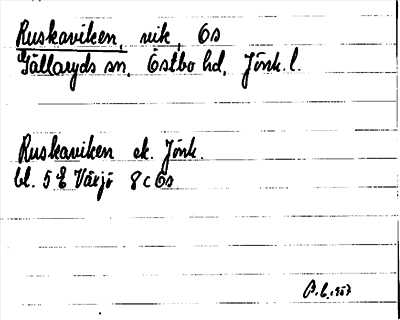 Ruskaviken, vik, Gs
Gällaryds sn, Östbo hd, Jönk. l.
Ruskaviken ek. Jönk.
bl. 5 E Värjö 8c Gs